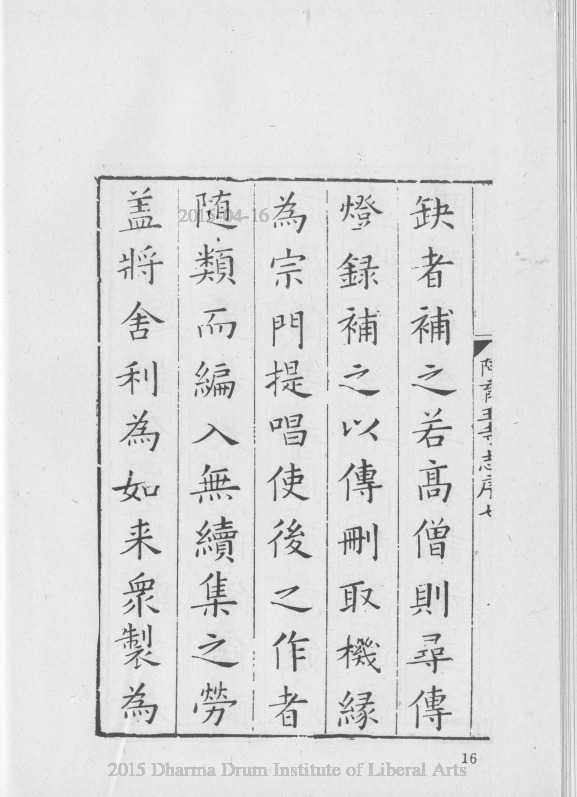 缺者補之若髙僧則尋傳
燈錄補之以傳刪取機緣
為宗門提唱使後之作者
随類而編入無續集之勞
盖將舍利為如来衆製為
阿育王寺志序七
2015-04-16
16
2015 Dharma Drum Institute of Liberal Arts